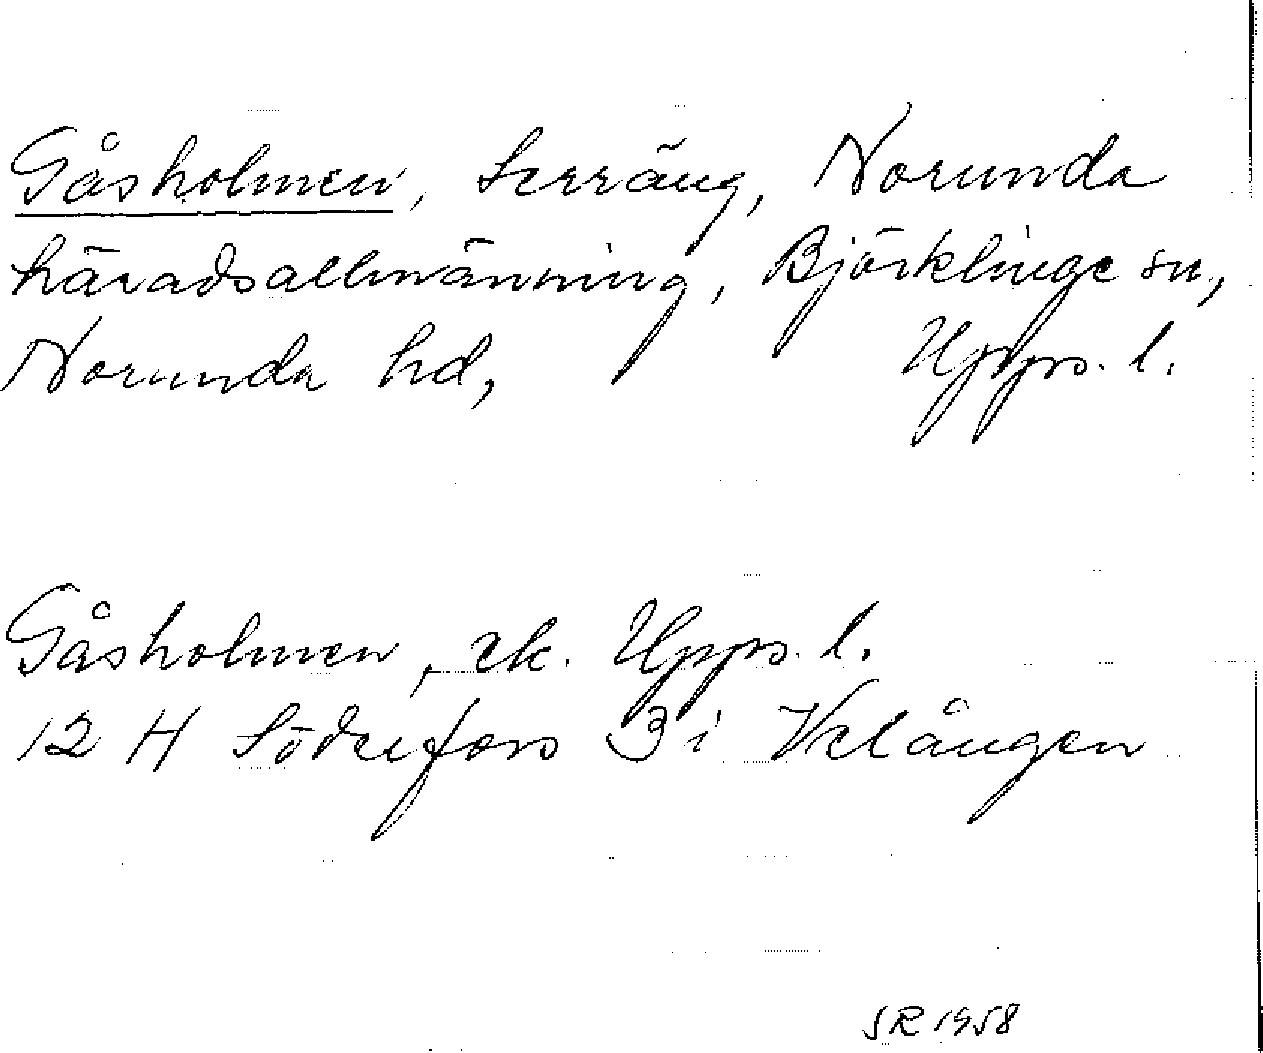 Gåsholmen, terräng, Norunda
häradsallmänning, Björklinge sn,
Norunda hd, Upps. l.
Gåsholmen, ek. Upps. l.
12 H Söderfors 3 i Velången
SR 1958